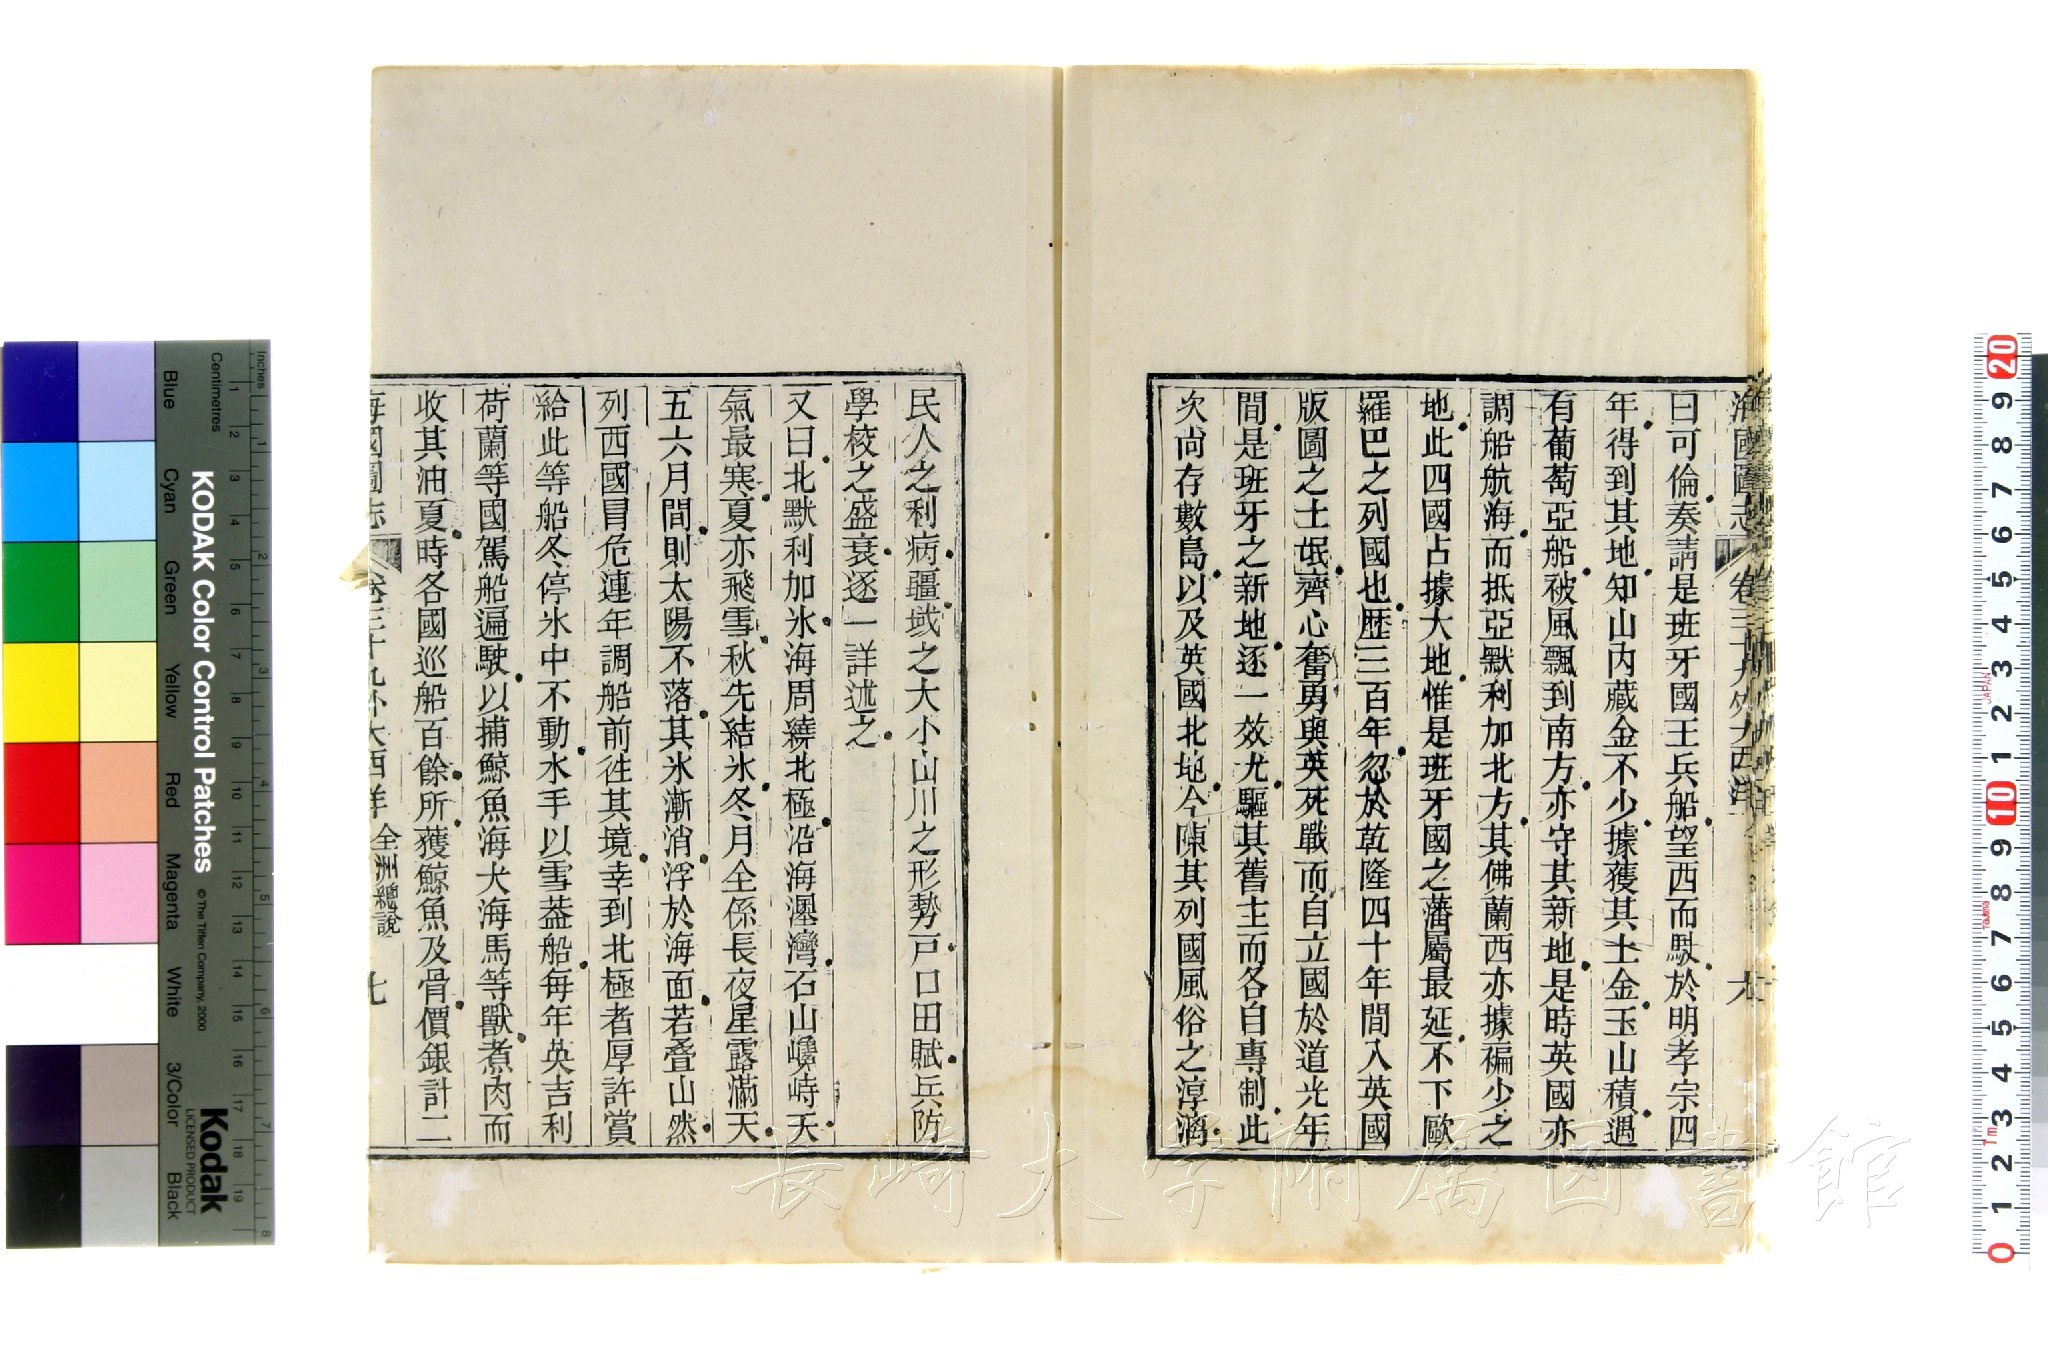 海國圖志 卷三十九 外大西洋 六
曰可倫奏請是班牙國王兵船望西而駛於明孝宗四
年得到其地知山內藏金不少據獲其土金玉山積遇
有葡萄亞船被風飄到南方亦守其新地是時英國亦
調船航海而抵亞默利加北方其佛蘭西亦據褊少之
地此四國占據大地惟是班牙國之藩屬最延不下歐
羅巴之列國也歷三百年忽於乾隆四十年間入英國
版圖之土氓齊心奮勇與英死戰而自立國於道光年
間是班牙之新地逐一效尤驅其舊主而各自專制此
次尚存數島以及英國北地今陳其列國風俗之淳漓
民人之利病疆域之大小山川之形勢戸口田賦兵防
學校之盛衰逐一詳述之
又曰北默利加氷海周繞北極沿海灣石山巉峙天
氣最寒夏亦飛雪秋先結氷冬月全係長夜星露滿天
五六月間則太陽不落其氷漸消浮於海面若叠山然
列西國冒危連年調船前徃其境幸到北極者厚許賞
給此等船冬停氷中不動水手以雪葢船每年英吉利
荷蘭等國駕船遍駛以捕鯨魚海犬海馬等獸煮肉而
收其油夏時各國巡船百餘所獲鯨魚及骨價銀計二
海國圖志 卷三十九 外大西洋 全洲總說 七
長崎大学附属図書館
KODAK Color Control Patches
©The Tiffen Company, 2000
Kodak
LICENSED PRODUCT
Inches
Centimetres
Blue
Cyan
Green
Yellow
Red
Magenta
White
3/Color
Black
1 2 3 4 5 6 7 8 9 10 11 12 13 14 15 16 17 18 19
1 2 3 4 5 6 7 8
20 9 8 7 6 5 4 3 2 1 10 9 8 7 6 5 4 3 2 1 0
JAPAN
1m